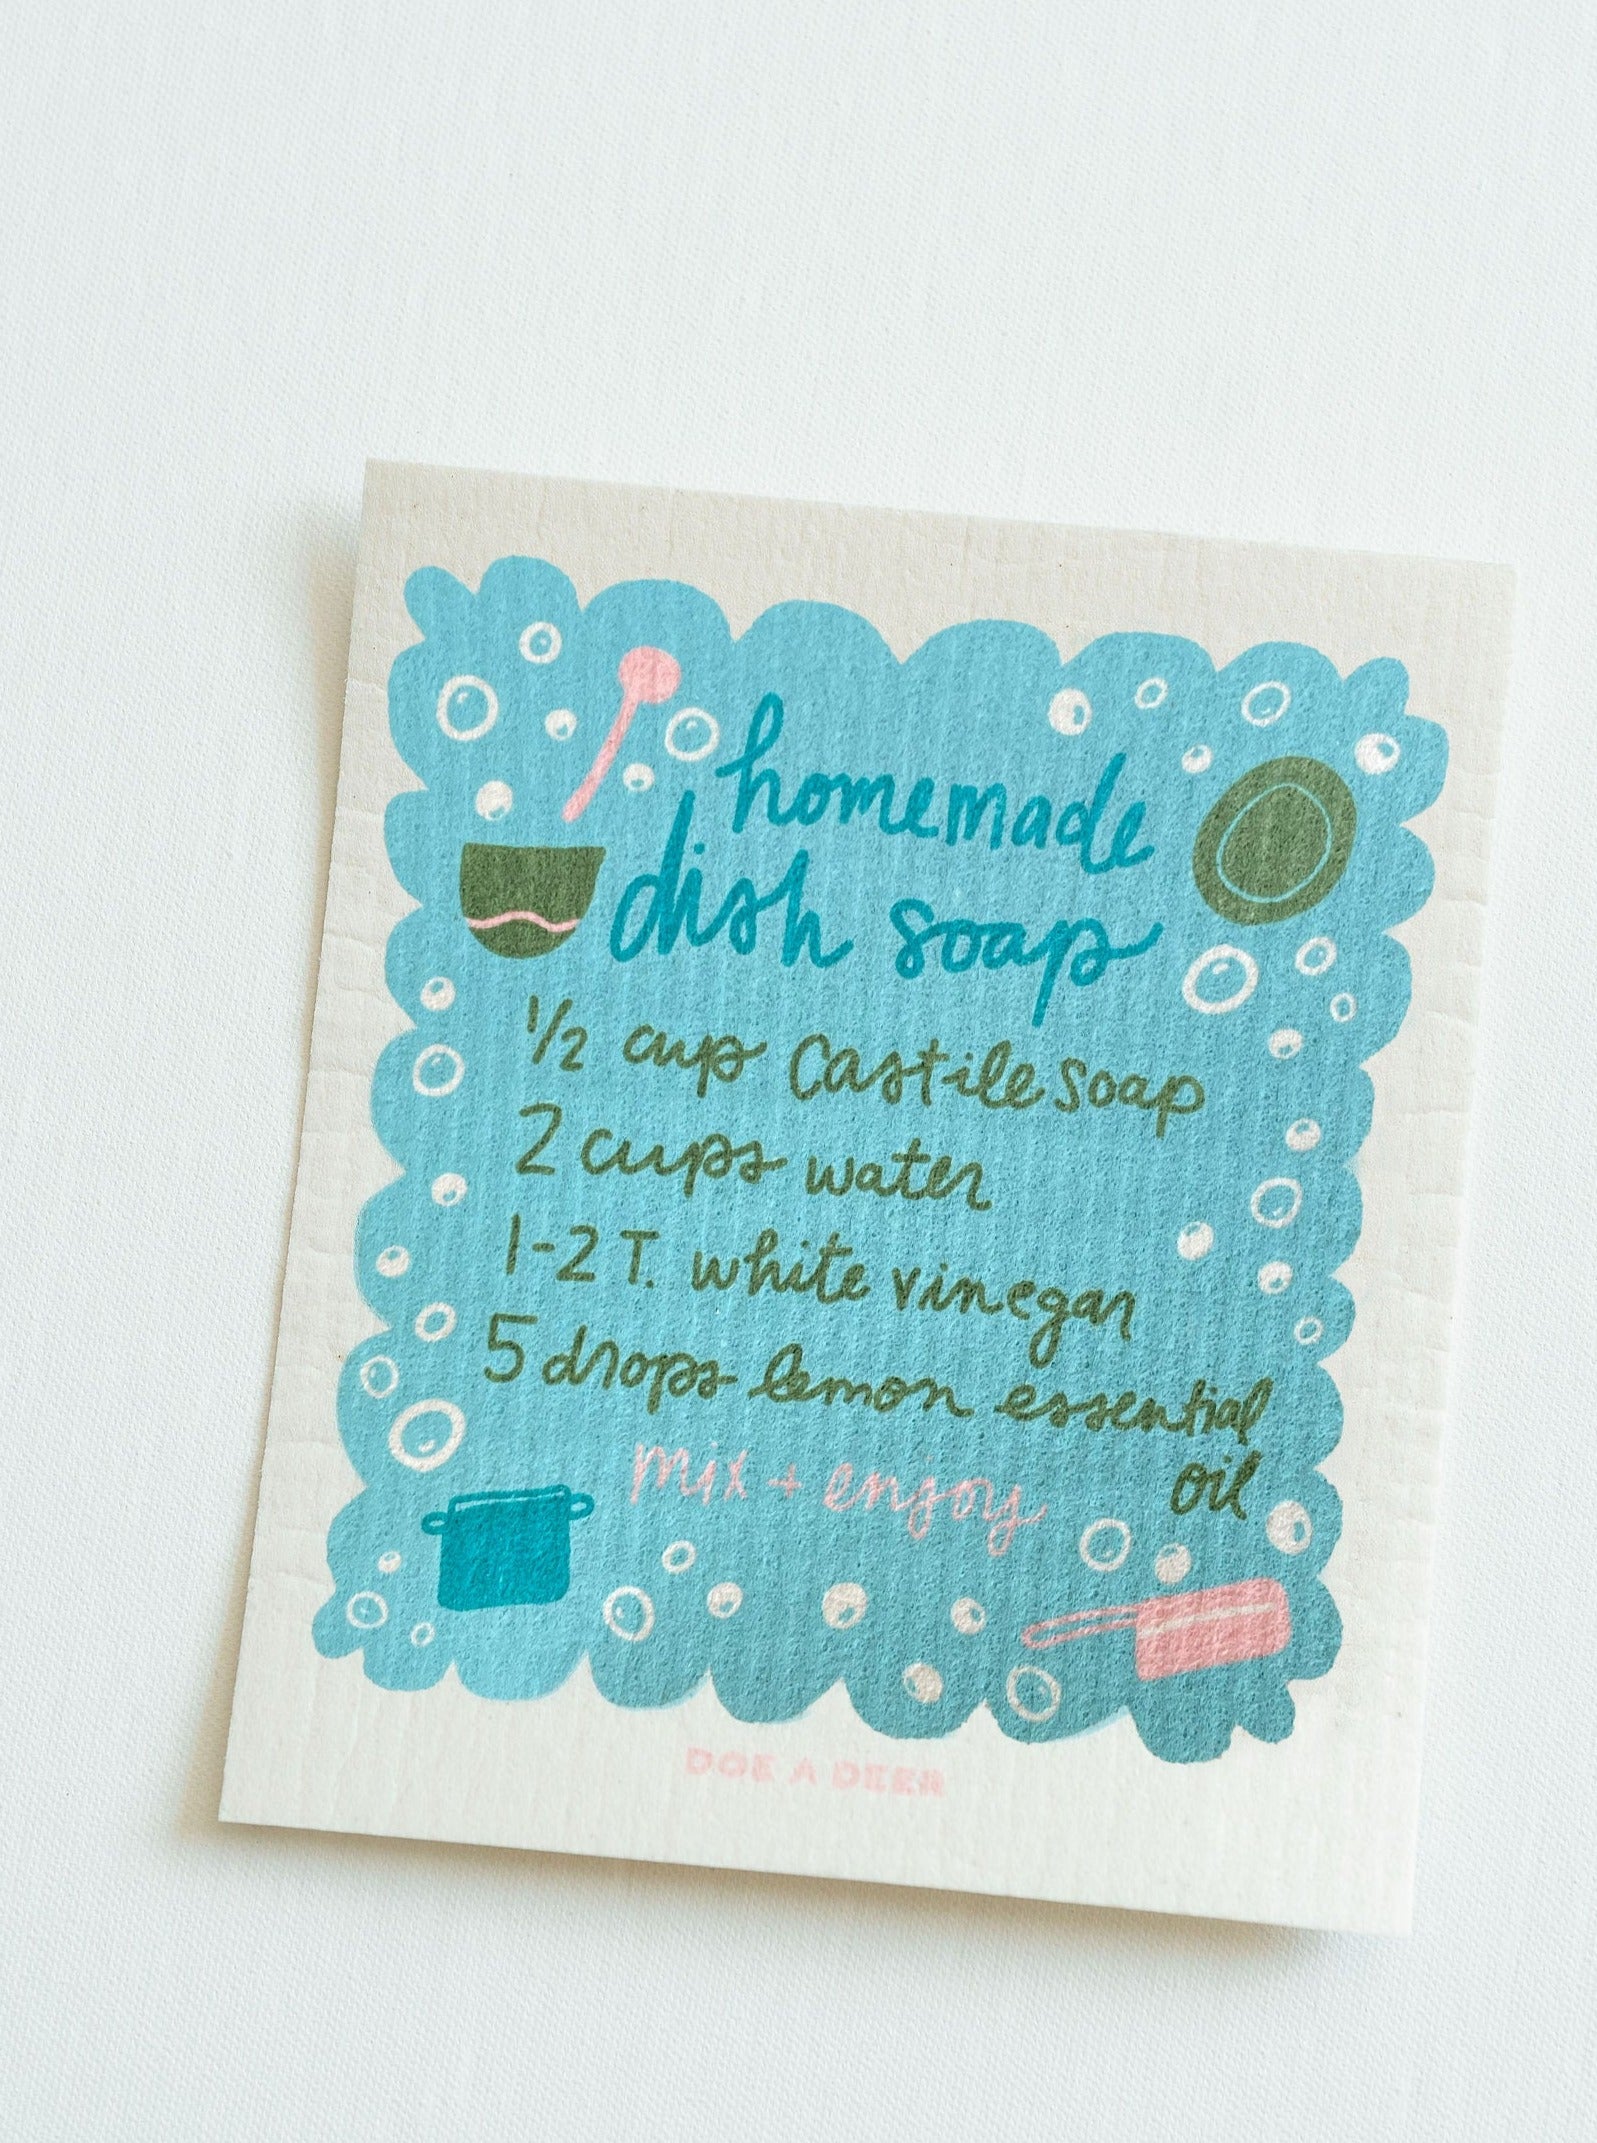 homemade
dish soap
1/2 cup Castile Soap
2 cups water
1-2 T. white vinegar
5 drops lemon essential
oil
mix + enjoy
DOE A DEER